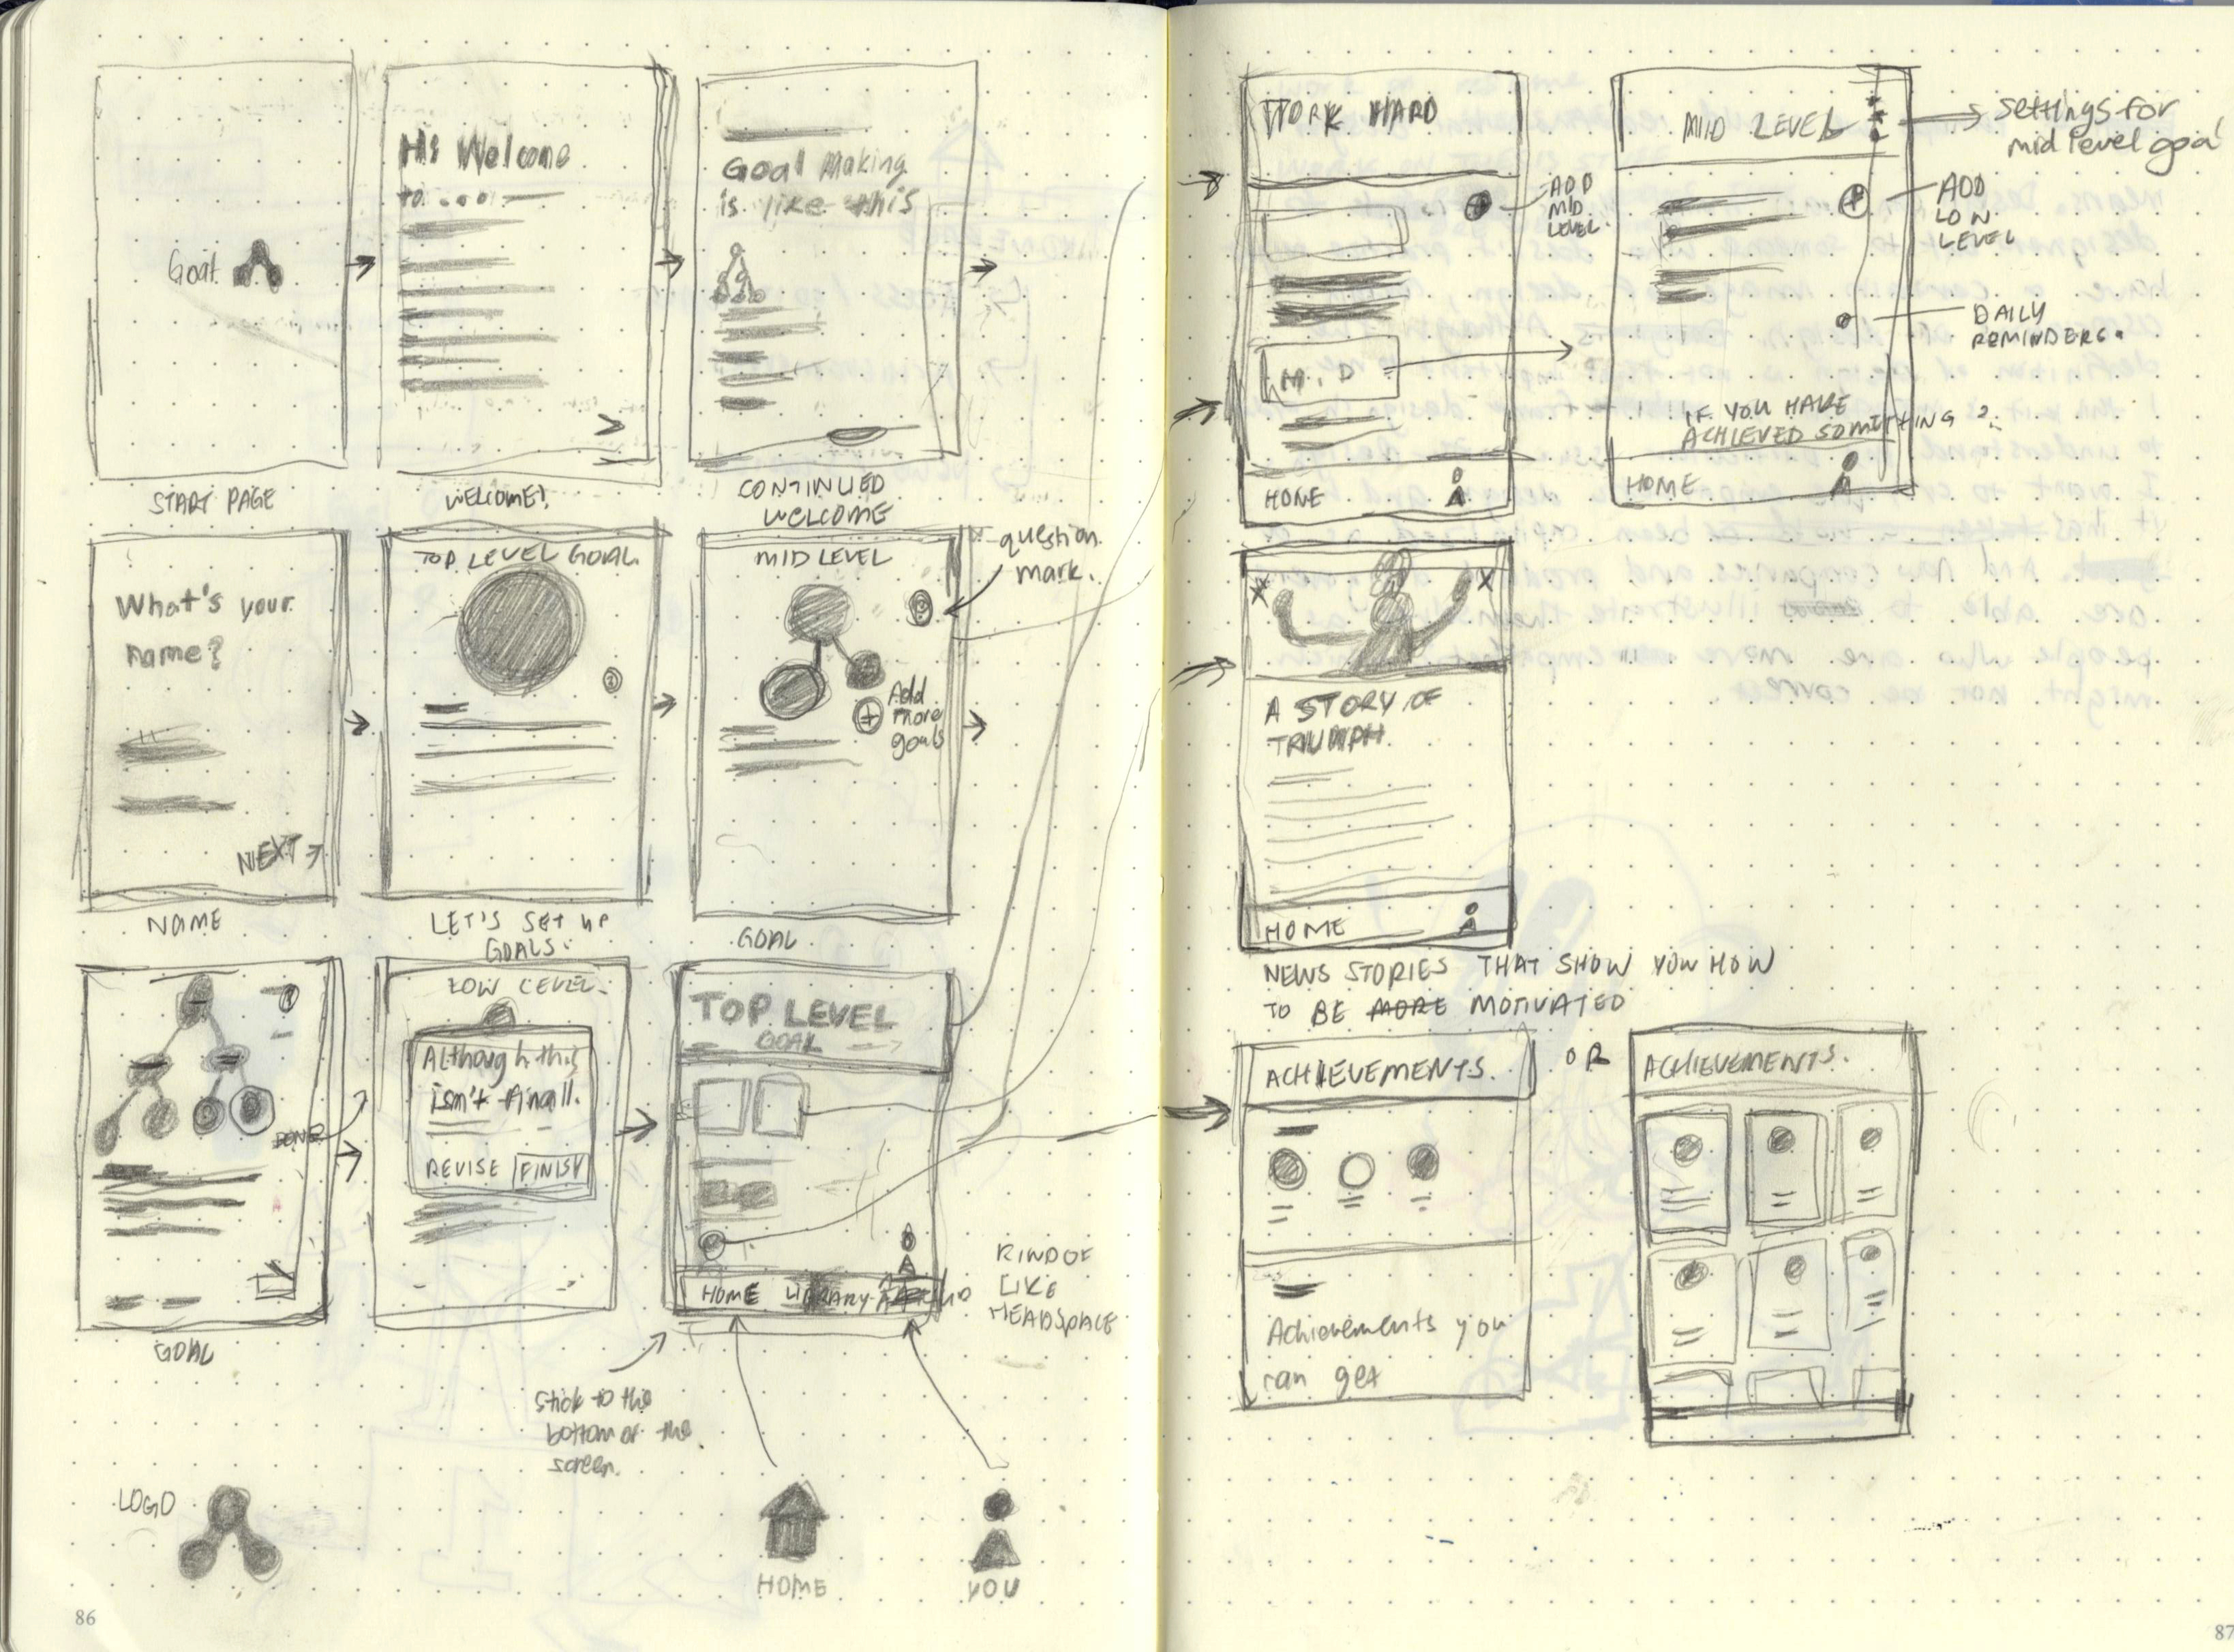 Goal
START PAGE
Hi Welcome
to....
WELCOME!
Goal Making
is like this
CONTINUED
WELCOME
What's your
name?
NEXT →
NAME
TOP LEVEL GOAL.
LET'S SET UP
GOALS.
MID LEVEL
question
mark.
Add
more
goals
GOAL
DONE
GOAL
LOW LEVEL.
Although this
isn't final.
REVISE FINISH
TOP LEVEL
GOAL
HOME LIBRARY
KIND OF
LIKE
HEADSPACE
Stick to the
bottom of the
screen.
LOGO
HOME
YOU
86
WORK HARD
ADD
MID
LEVEL.
MID
HOME
MID LEVEL
settings for
mid level goal
ADD
LOW
LEVEL
DAILY
REMINDERS.
IF YOU HAVE
ACHIEVED SOMETHING?
HOME
A STORY OF
TRIUMPH
HOME
NEWS STORIES THAT SHOW YOU HOW
TO BE MORE MOTIVATED
ACHIEVEMENTS.
Achievements you
can get
OR
ACHIEVEMENTS.
87